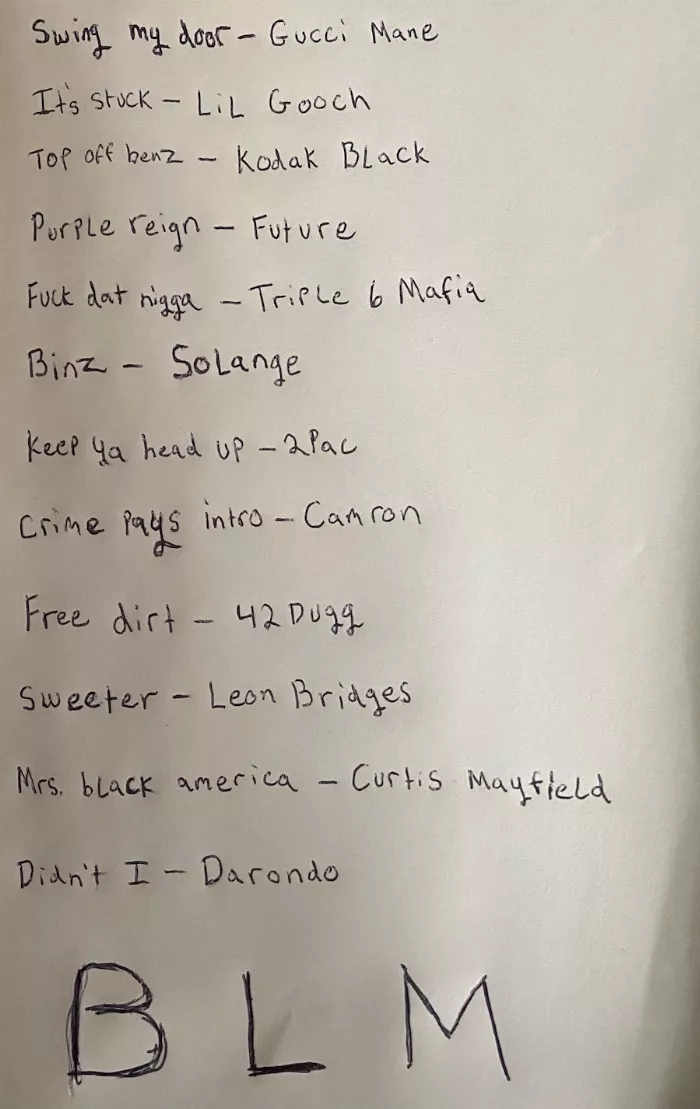 Swing my door - Gucci Mane
It's stuck - LiL Gooch
Top off benz - Kodak Black
Purple reign - Future
Fuck dat nigga - Triple 6 Mafia
Binz - Solange
Keep ya head up - 2Pac
Crime pays intro - Camron
Free dirt - 42 Dugg
Sweeter - Leon Bridges
Mrs. black america - Curtis Mayfield
Didn't I - Darondo
B L M